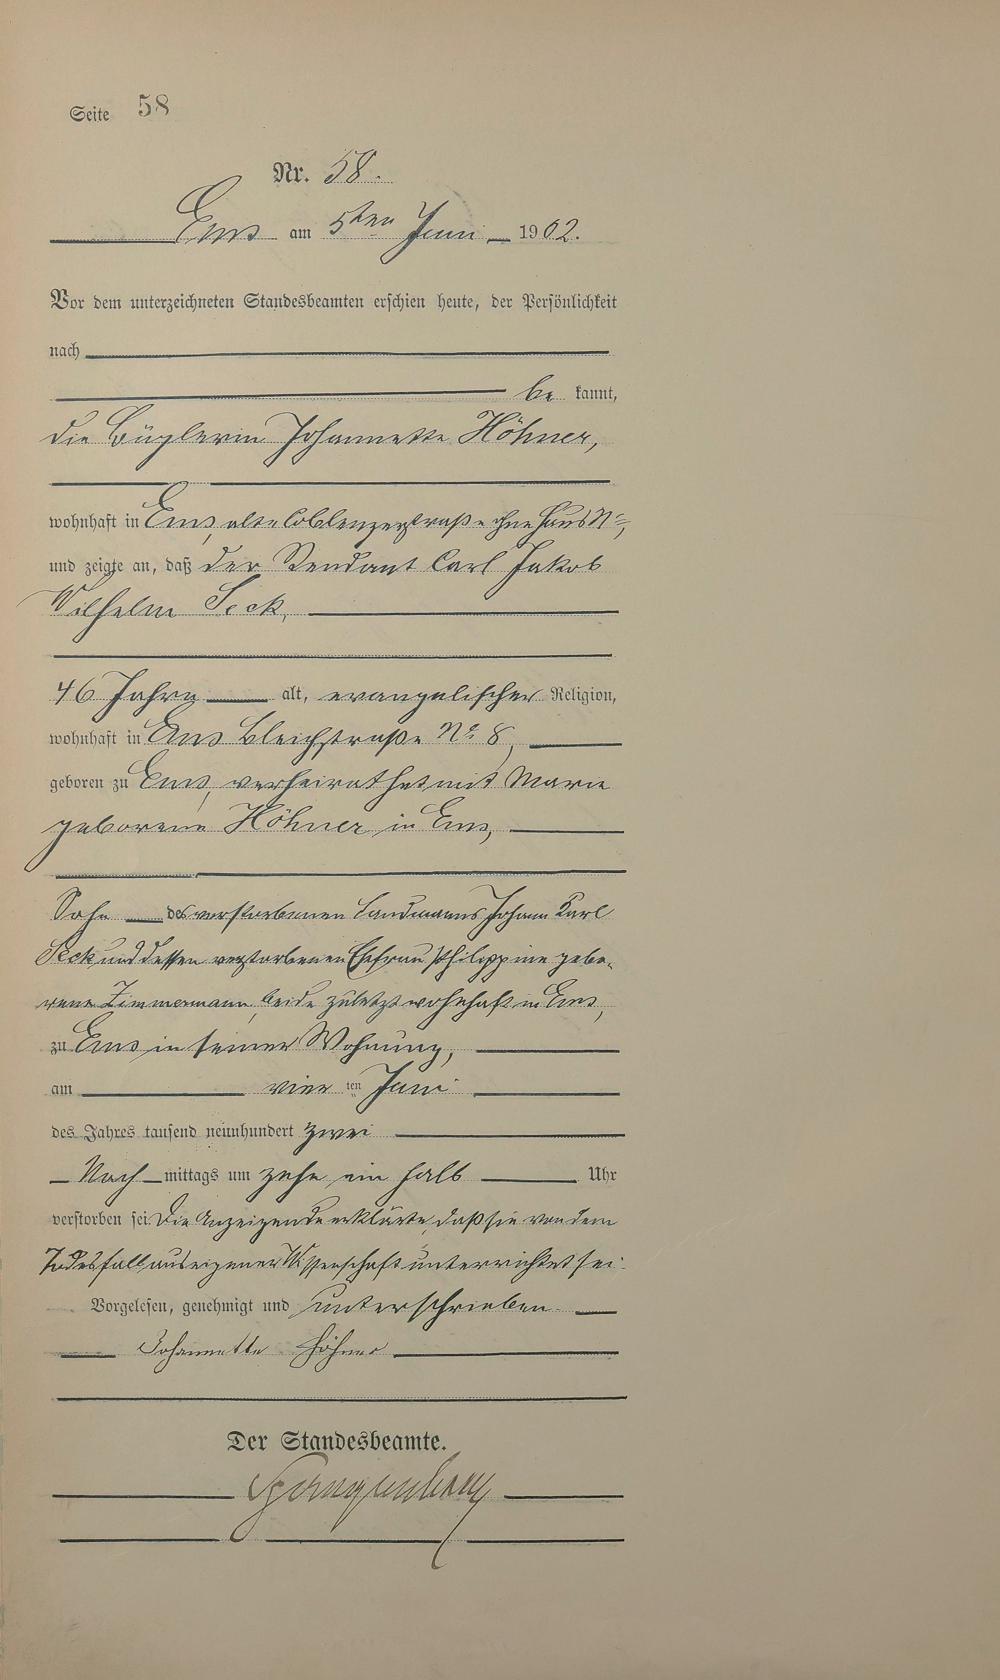 Seite 58
Nr. 58.
Ems am 5ten Juni 1902.
Vor dem unterzeichneten Standesbeamten erschien heute, der Persönlichkeit
nach
be kannt,
die Büglerin Johannette Höhner,
wohnhaft in Ems, alte Coblenzerstraße ohne Haus No,
und zeigte an, daß der Rendant Carl Jakob
Wilhelm Seck,
46 Jahre alt, evangelischer Religion,
wohnhaft in Ems Bleichstraße No 8,
geboren zu Ems, verheirathet mit Marie
geborene Höhner in Ems,
Sohn des verstorbenen Landmanns Johann Karl
Seck und dessen verstorbenen Ehefrau Philippine gebo-
rene Zimmermann, beide zuletzt wohnhaft in Ems,
zu Ems in seiner Wohnung,
am vier ten Juni
des Jahres tausend neunhundert zwei
Nach mittags um zehn ein halb Uhr
verstorben sei. Die Anzeigende erklärte, daß sie von dem
Todesfall aus eigener Wissenschaft unterrichtet sei.
Vorgelesen, genehmigt und unterschrieben
Johannette Höhner
Der Standesbeamte.